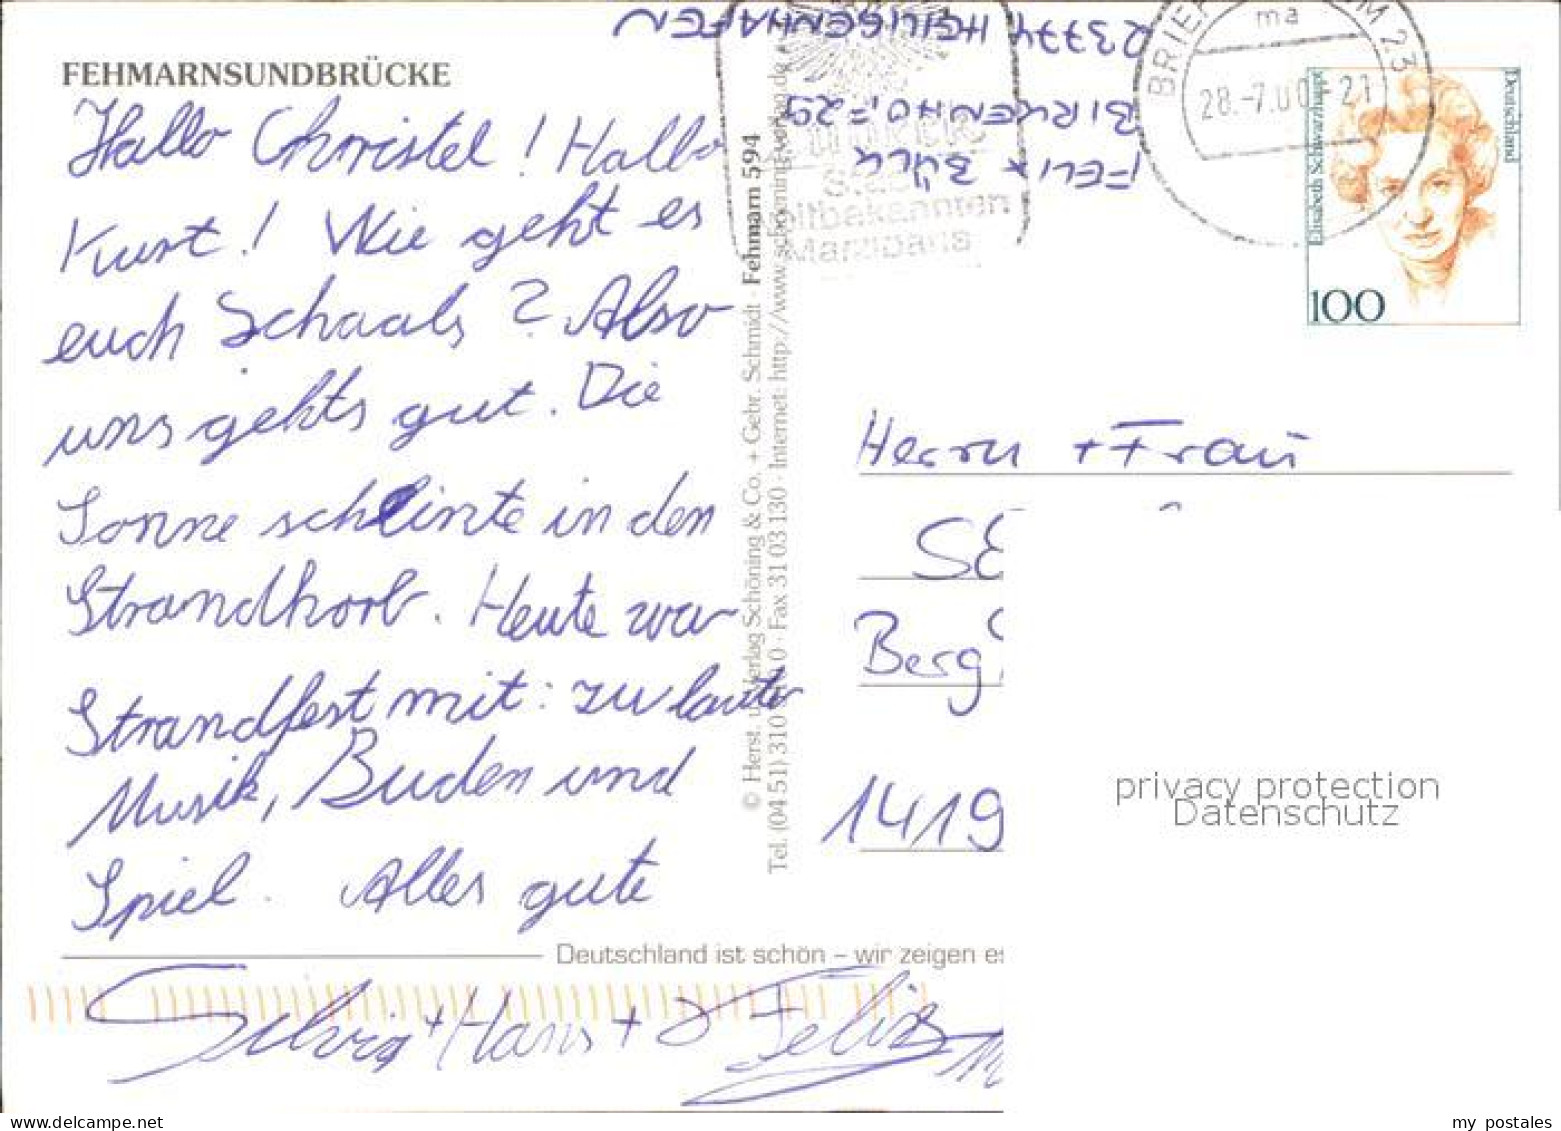 FEHMARNSUNDBRÜCKE
Hallo Christel! Hallo
Kurt! Wie geht es
euch Schaals? Also
uns gehts gut. Die
Sonne scheinte in den
Strandkorb. Heute war
Strandfest mit: zu lauter
Musik, Buden und
Spiel. Alles gute
Silvia + Hans + Felix
Deutschland ist schön – wir zeigen es
© Herst. u. Verlag Schöning & Co. + Gebr. Schmidt · Fehmarn 594
Tel. (04 51) 310 · Fax 31 03 130 · Internet: http://www.schoening-verlag.de
FELIX BÜLL
BIRKENHOF 29
23774 HEILIGENHAFEN
Stadt
weltbekannten
Marzipans
BRIEFZENTRUM 23
ma
28.-7.00-21
Elisabeth Schwarzhaupt
Deutschland
100
Herrn + Frau
Berg
1419
privacy protection
Datenschutz
my postales